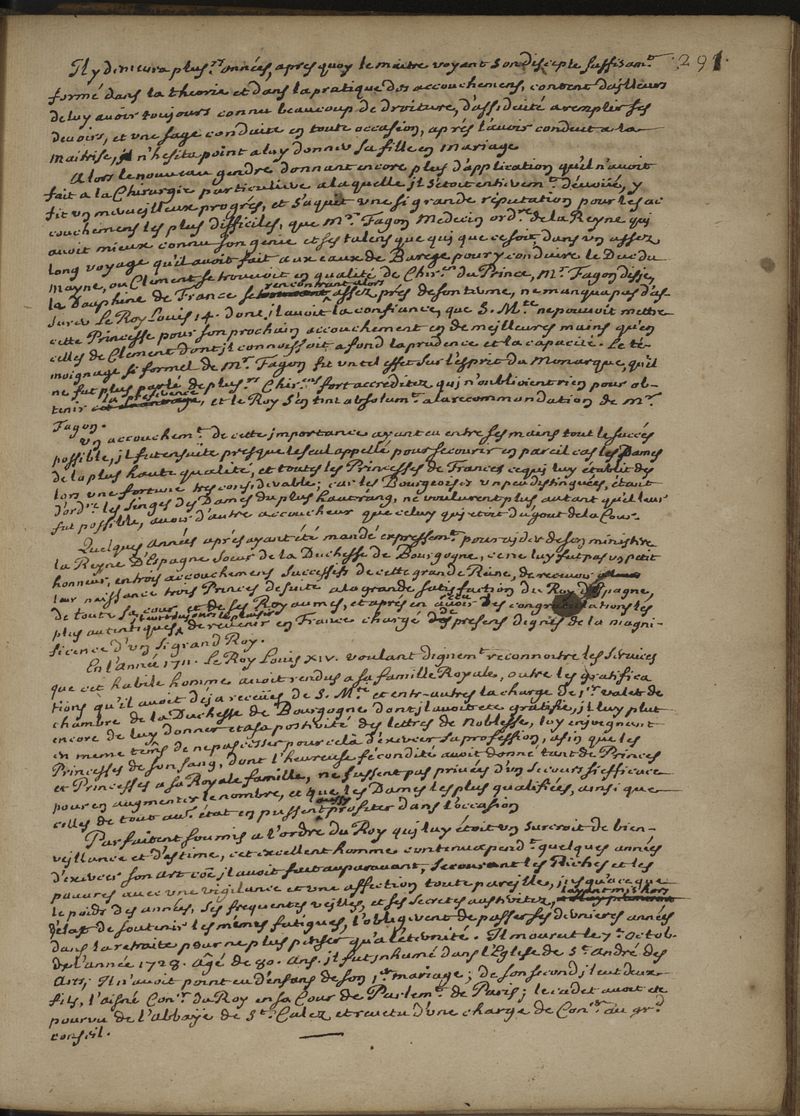 291.
Il y demeura plus.rs années, apres quoy le maitre voyant son disciple suffisam.t
formé dans la theorie et dans la pratique des accouchemens, content d'ailleurs
de luy avoir toujours connu beaucoup de droiture, d'assiduité a remplir ses
devoirs, et une sage conduite en toute occasion, aprés l'avoir conduit a la
maitrise, il n'hesita point a luy donner sa fille en mariage
Alors le nouveau gendre donnant encore plus d'application qu'il n'avoit
fait a la Chirurgie particuliere a laquelle jl s'etoit entierem.t dévoüé, y
fit un merveilleux progrés, et s'aquit une si grande réputation pour les ac
couchemens les plus difficiles, que M.r Fagon Medecin ord.re de la Reyne qui
avoit mieux connu son genie et ses talens que qui que ce soit, dans un assez
long voyage qu'il avoit fait aux eaux de Barege pour y conduire le Duc du
Mayne, ou Clement se trouvoit en qualité de Chir.n du Prince, M.r Fagon disje,
la Dauphine de France se rencontrant alors assez prés de son terme, ne manqua pas d'as-
surer Le Roy Louis 14. dont jl avoit la confiance, que S. M.té ne pouvoit mettre
cette Princesse pour son prochain accouchement en de meilleures mains qu'en
celles de Clement dont jl connoissoit a fond la prudence et la capacité. Le té-
moignage si formel de M.r Fagon fit un tel effet sur l'esprit du Monarque, qu'il
ne fut plus parlé de plus.rs Chir.ns fort accréditez qui n'oublioient rien pour ob-
tenir la préférence, et le Roy s'en tint absolum.t a la recommandation de M.r
Fagon.
Un accouchem.t de cette jmportance ayant eu entre ses mains tout le succés
possible, jl fut ensuite presque le seul appellé pour secourir en pareil cas les Dames
de la plus haute qualité, et toutes les Princesses de France; ce qui luy établit des
lors une fortune tres considerable; car les Bourgeoises un peu distinguées, étant
d'ord.re les singes des Dames du plus haut rang, ne voulurent plus autant qu'il leur
fut possible, avoir d'autre accoucheur que celuy qui etoit du gout de la Cour.
Quelques Années aprés ayant été mandé expressem.t pour aider de son ministere
la Reyne D'Espagne Soeur de la Duchesse de Bourgogne, ce ne luy fut pas un petit
honneur, en trois accouchemens successifs de cette grande Reine, de recevoir
leur naissance trois Princes de suite a la grande satisfaction du Roy d'Espagne,
de toute sa cour et de ses Royaumes, et aprés en avoir receu des congratulations les
plus autentiques, de revenir en France chargé des presens dignes de la magni-
ficence d'un si grand Roy.
En l'année 1711. Le Roy Louis XIV. voulant dignem.t reconnoitre les services
que cet habile homme avoit rendus a sa famille Royale, outre les gratifica
tions qu'il avoit déja receües de S. M.té et entr-autres la charge de 1.er valet de
chambre de la Duchesse de Bourgogne dont jl avoit eté gratifié, jl luy plut
encore de luy donner et a sa postérité des lettres de Noblesse, luy enjoignant
en meme tems de ne pas cesser pour cela d'exercer sa proféssion, afin que les
Princesses de son sang, dont l'heureuse fécondité avoit donné tant de Princes
et Princesses a sa Royale famille, ne fussent pas privées d'un secours si efficace
pour en augmenter le nombre, et que les Dames les plus qualifiées, ainsi que
celles de tout au.e état en pussent aussy profiter dans l'occasion
Parfaitent soumis a l'ordre du Roy qui luy étoit un surcroit de bien-
veillance et d'estime, cet excellent homme continua pend.t quelques années
d'exercer son art coe jl avoit fait auparavant, secourant les Riches et les
pauvres avec une vigilance et une affection toute pareilles, jusqu'a ce que
le poids des années, ses frequentes veilles, et ses secretes austeritez, l'ayant mis hors
d'etat de soutenir les mémes fatigues, l'obligerent de passer ses dernieres années
dans la retraite pour ne plus penser qu'a l'éternité. Il mourut le 7.e Octob.
de l'année 1728. Agé de 80. Ans. jl fut jnhumé dans l'Eglise de S.t André des
Arts; Il n'avoit point eu d'enfans de son 1.er mariage; de son second jl eut deux
fils, l'aisné Con.er du Roy en sa Cour de Parlem.t de Paris; le cadet avoit eté
pourvu de l'Abbaÿe de S.t Calez et revetu d'une charge de Con.er au gr.d
conseil.